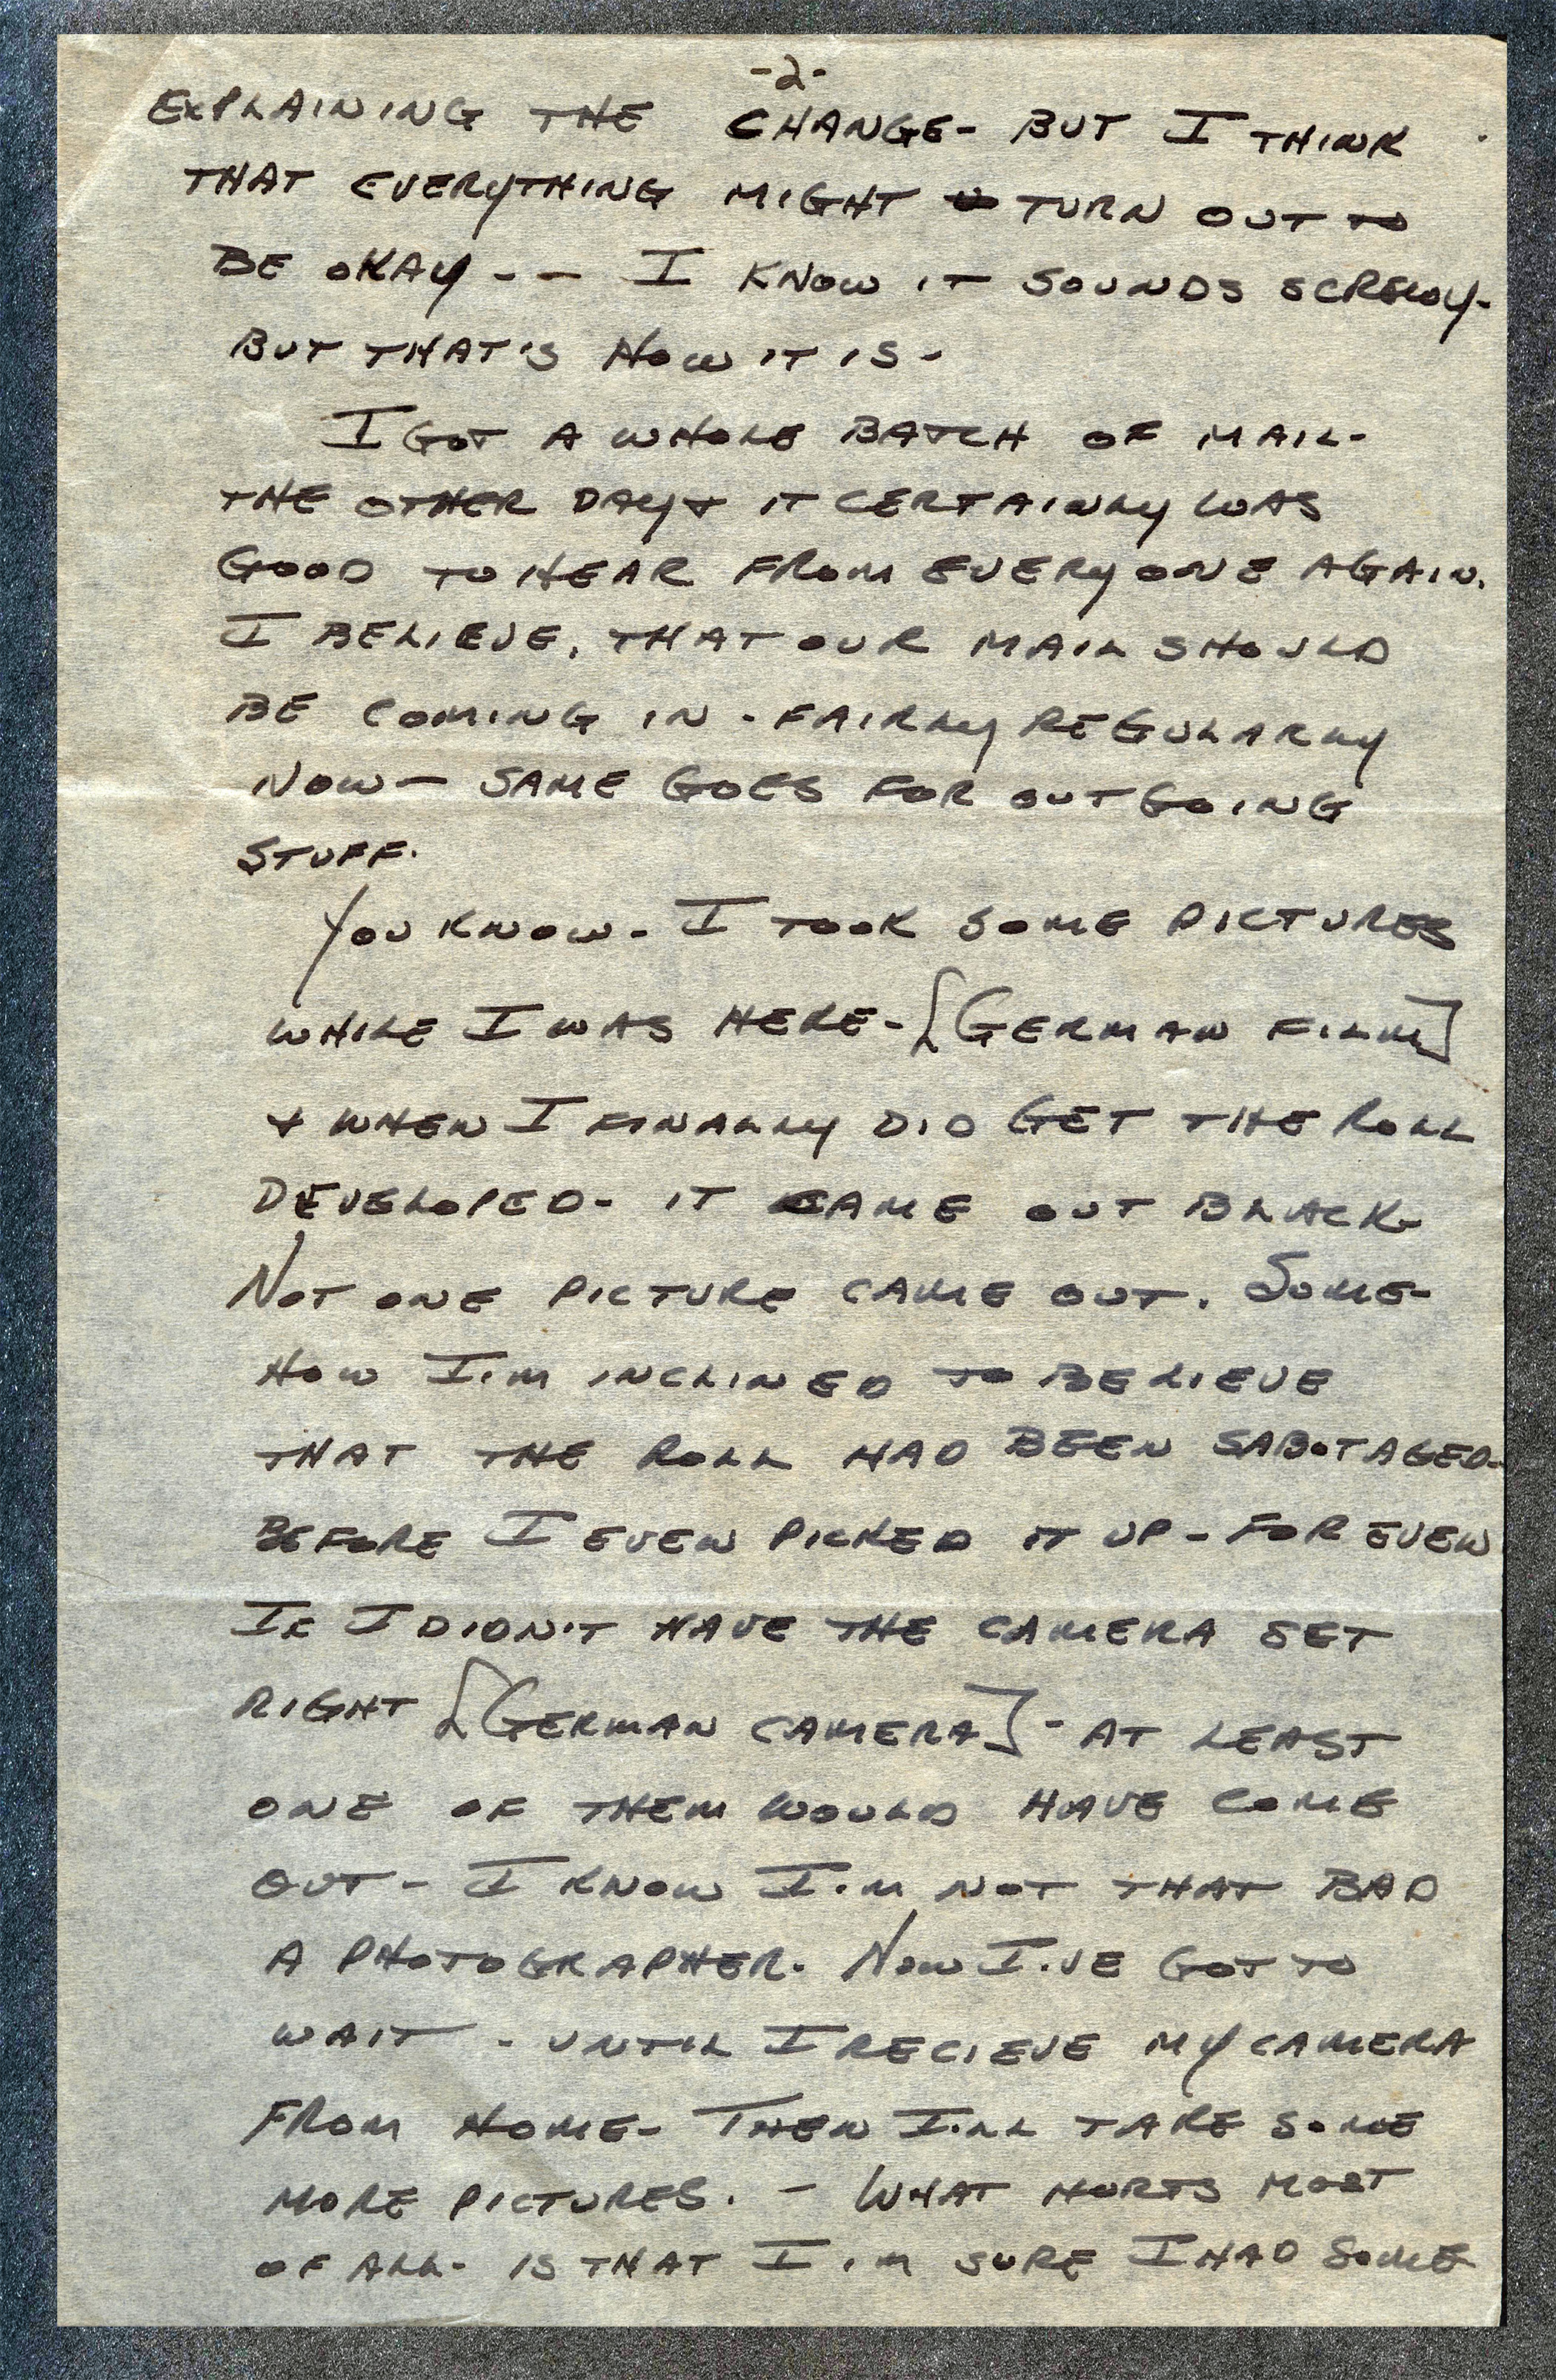 -2-
EXPLAINING THE CHANGE- BUT I THINK
THAT EVERYTHING MIGHT TURN OUT TO
BE OKAY - - I KNOW IT SOUNDS SCREWY-
BUT THAT'S HOW IT IS-
I GOT A WHOLE BATCH OF MAIL-
THE OTHER DAY & IT CERTAINLY WAS
GOOD TO HEAR FROM EVERYONE AGAIN.
I BELIEVE, THAT OUR MAIL SHOULD
BE COMING IN - FAIRLY REGULARLY
NOW - SAME GOES FOR OUTGOING
STUFF.
YOU KNOW - I TOOK SOME PICTURES
WHILE I WAS HERE - [GERMAN FILM]
& WHEN I FINALLY DID GET THE ROLL
DEVELOPED - IT CAME OUT BLACK-
NOT ONE PICTURE CAME OUT. SOME-
HOW I'M INCLINED TO BELIEVE
THAT THE ROLL HAD BEEN SABOTAGED-
BEFORE I EVEN PICKED IT UP - FOR EVEN
IF I DIDN'T HAVE THE CAMERA SET
RIGHT [GERMAN CAMERA] - AT LEAST
ONE OF THEM WOULD HAVE COME
OUT - I KNOW I'M NOT THAT BAD
A PHOTOGRAPHER. NOW I'VE GOT TO
WAIT - UNTIL I RECIEVE MY CAMERA
FROM HOME - THEN I'LL TAKE SOME
MORE PICTURES. - WHAT HURTS MOST
OF ALL - IS THAT I'M SURE I HAD SOME